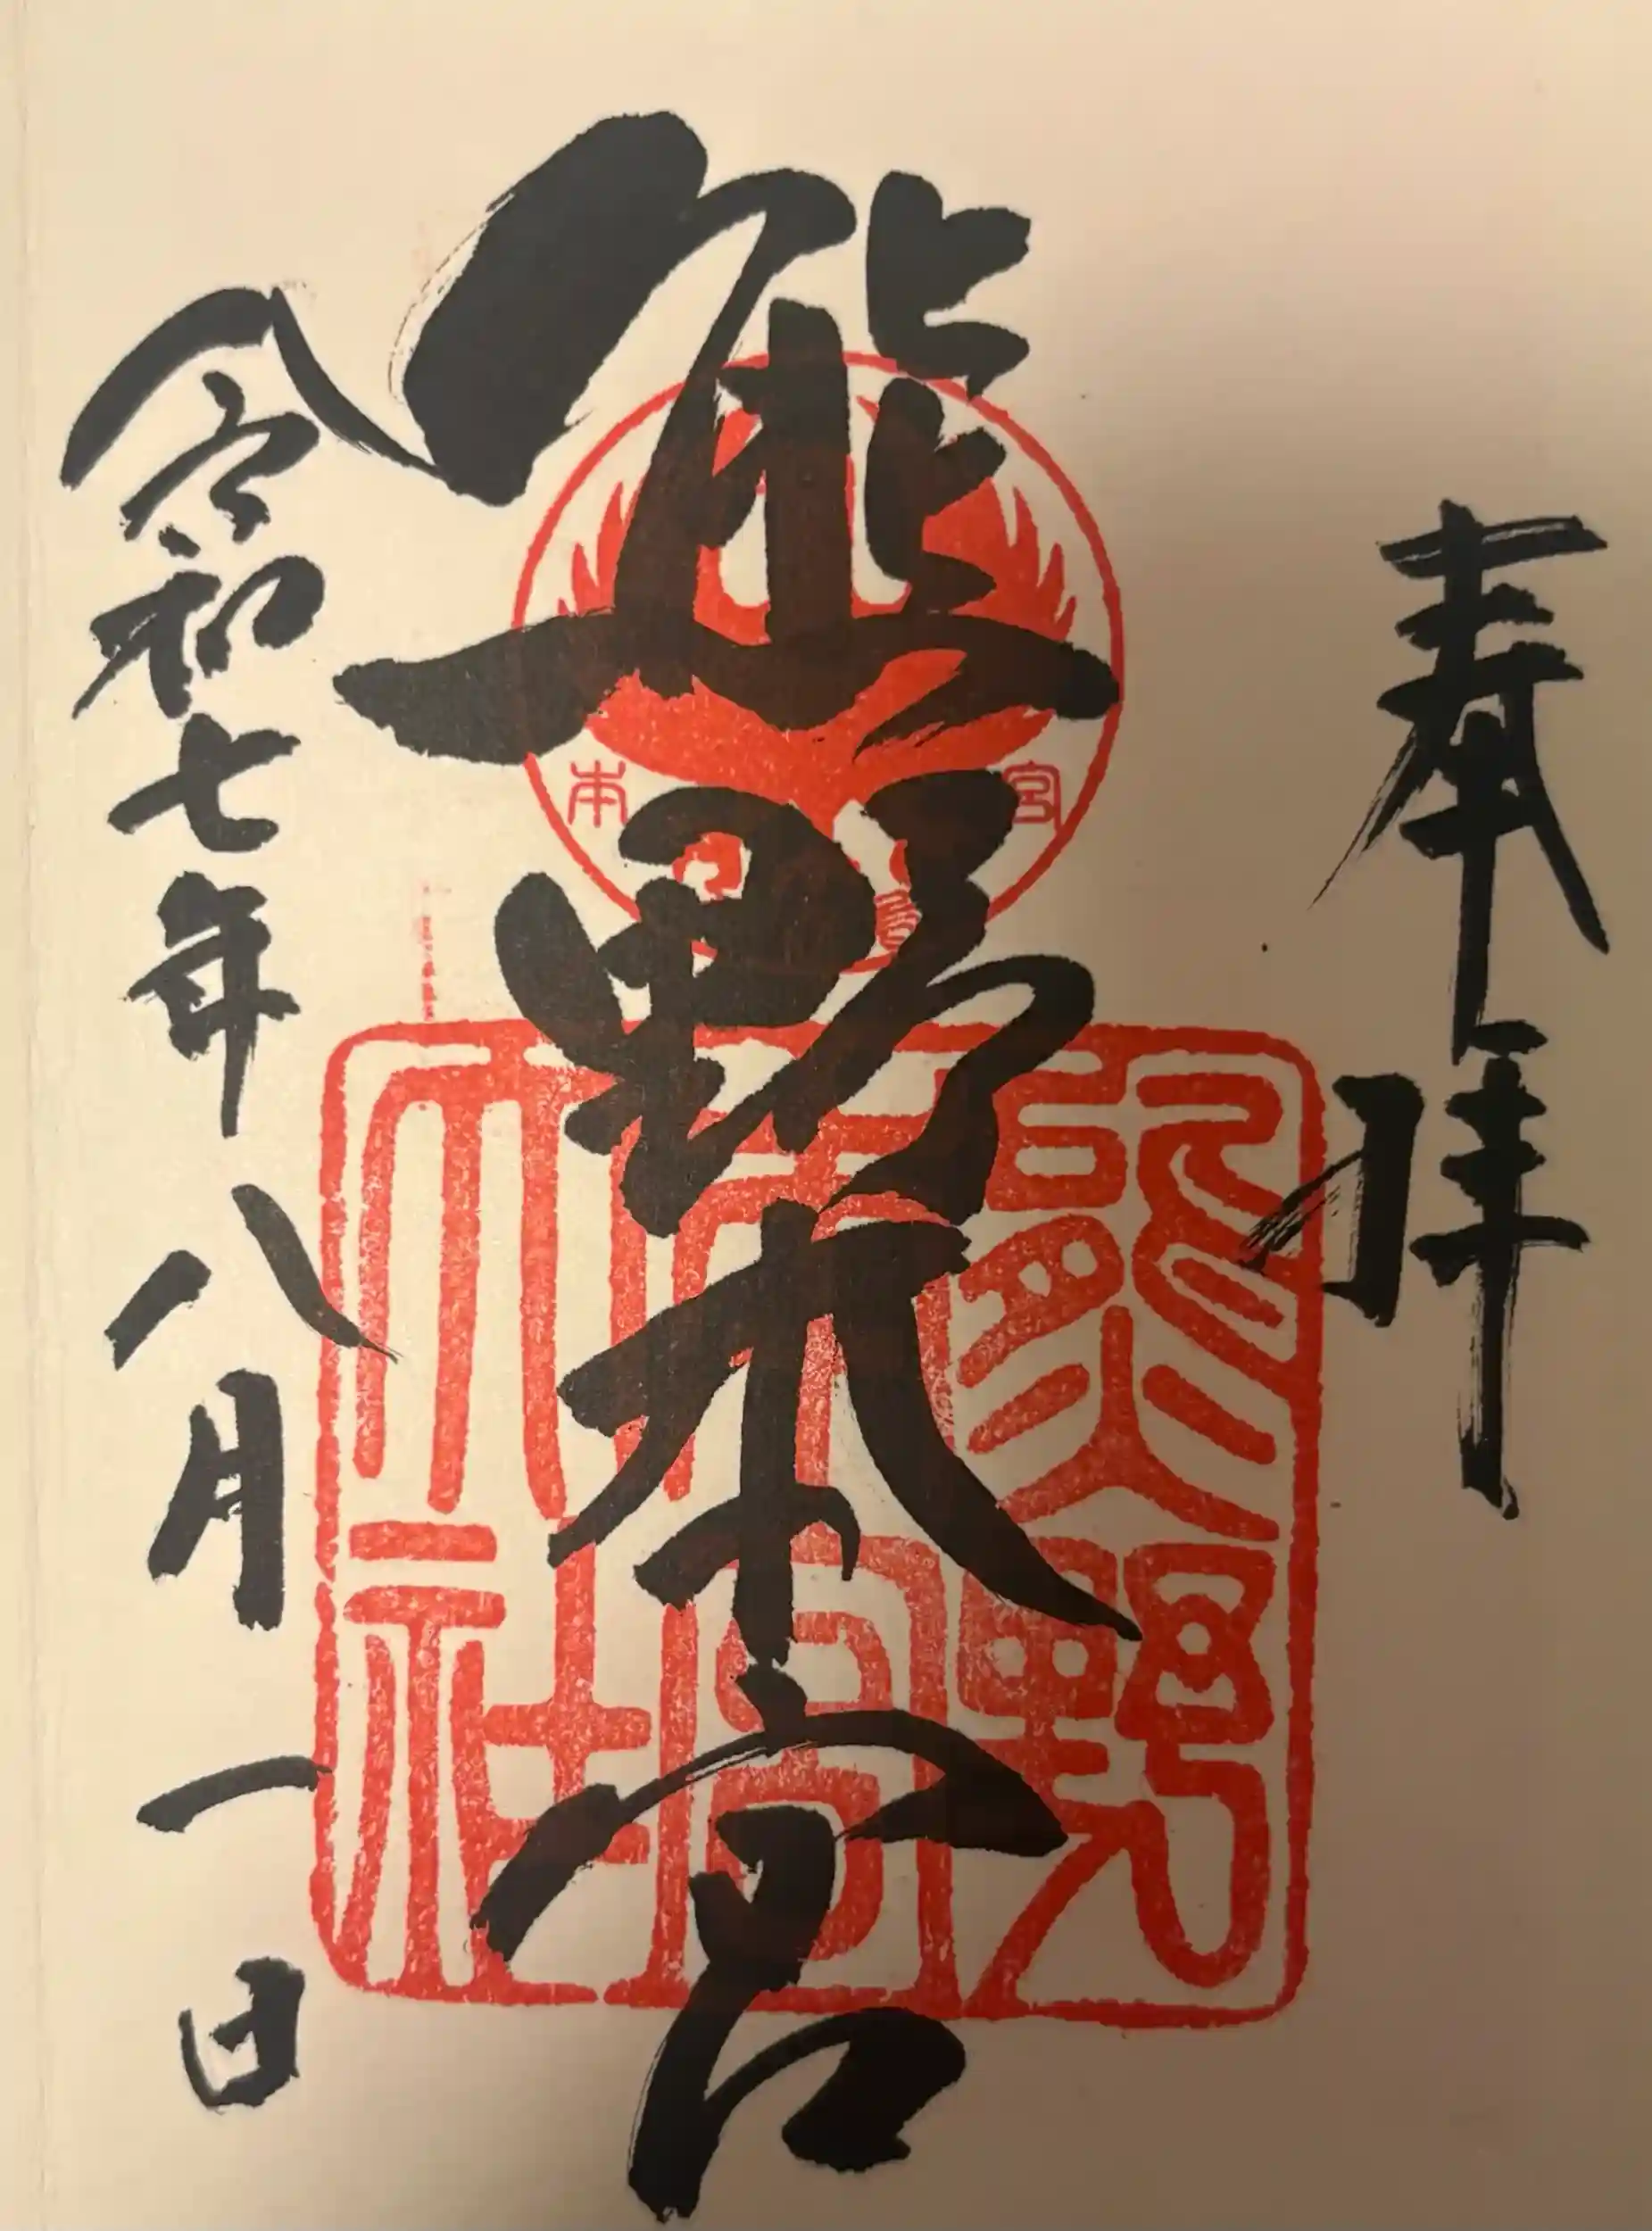 奉拝
熊野本宮
本 宮
熊野
本宮
大社
令和七年八月一日